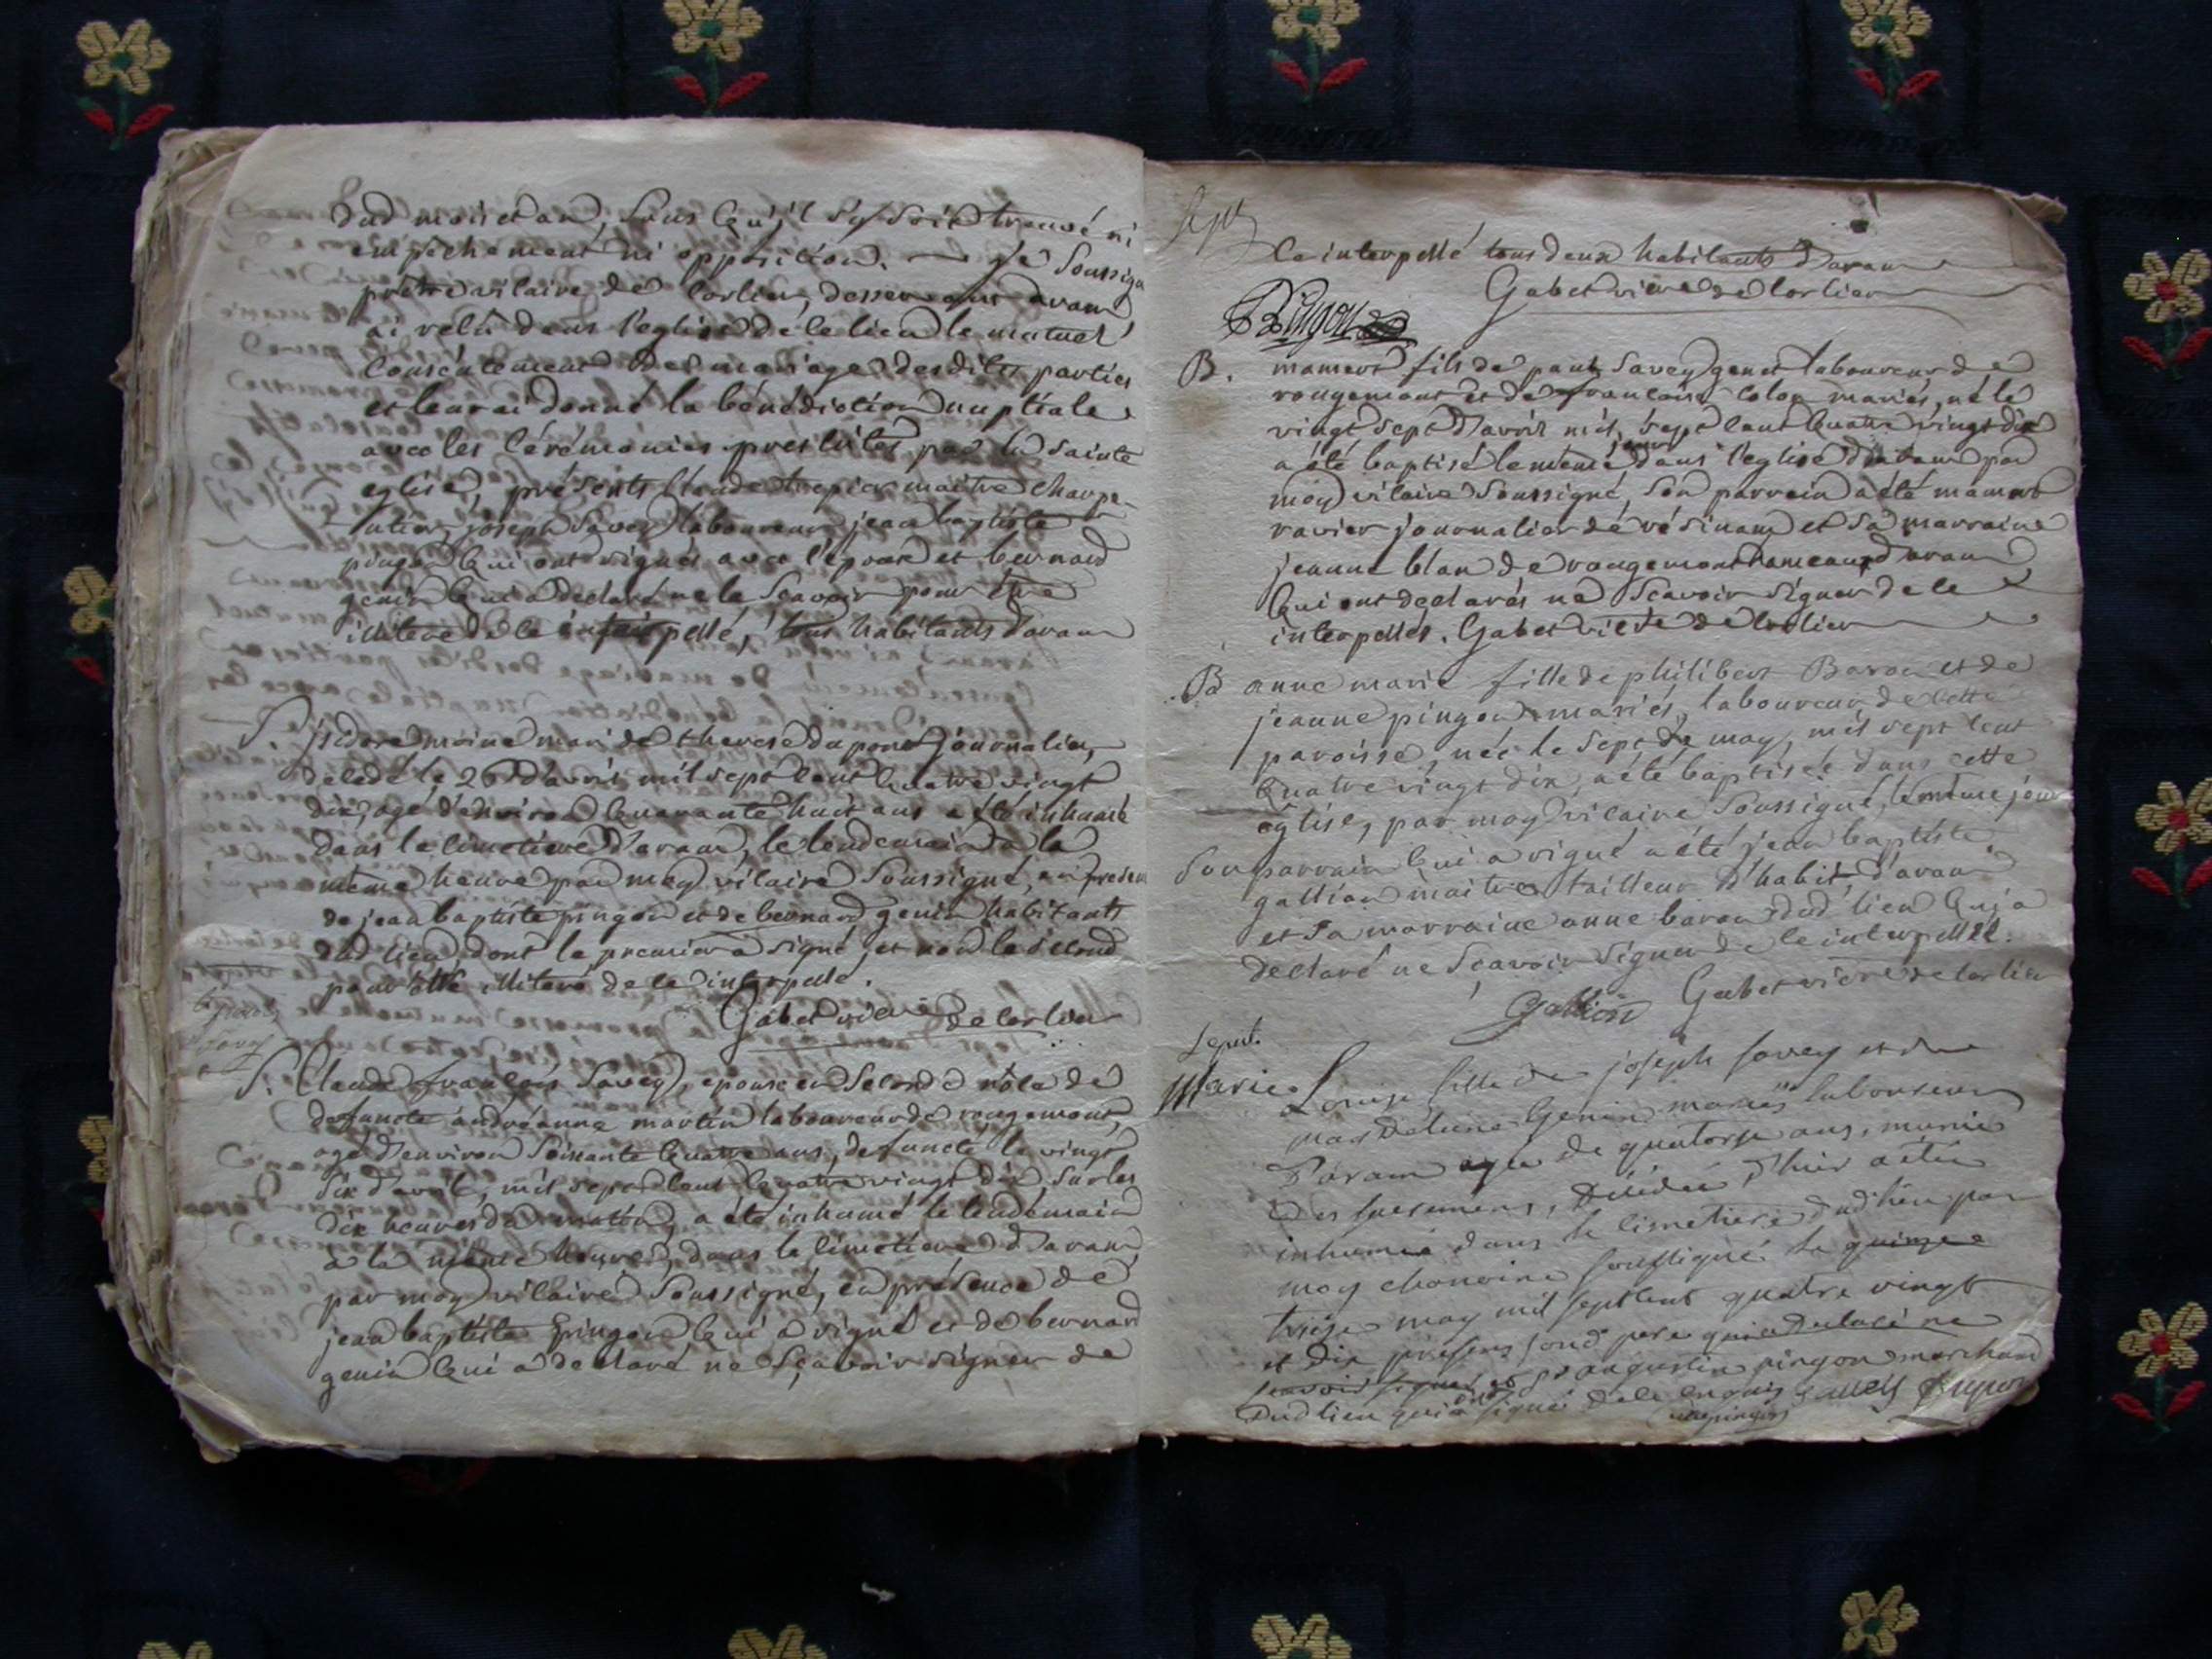 dud mois et an, sans qu'il s'y soit trouvé ni
empêchement ni opposition. je soussigné
prêtre vicaire de Corlier, desservant d'aran
ai reçu dans l'eglise de ce lieu le mutuel
consentement de mariage desdites parties
et leur ai donné la bénédiction nuptiale
avec les cérémonies prescrites par la sainte
eglise, présents Claude trepier maitre charpe-
ntier, joseph Savey laboureur, jean baptiste
pingon qui ont signés avec l'epoux et bernard
genin qui a declaré ne le scavoir pour être
illiteré de ce interpellé, tous habitants d'aran
S isidore moine mari de therese dupont journalier,
décédé le 26 d'avril mil sept cent quatre vingt
dix, agé d'environ quarante huit ans a été inhumé
dans le cimetiere d'aran, le lendemain a la
même heure par moy vicaire soussigné, en presence
de jean baptiste pingon et de bernard genin habitants
dud lieu, dont le premier a signé, et non le second
pour être illiteré de ce interpellé.
Gabet vicre de Corlier
S. Claude françois Savey, epoux en second de
defuncte andréanne martin laboureur de rougemont,
agé d'environ soixante quatre ans, defuncté le vingt
six d'avril, mil sept cent quatre vingt dix sur les
dix heures du matin, a été inhumé le lendemain
a la même heure, dans le cimetiere d'aran,
par moy vicaire soussigné, en présence de
jean baptiste pingon qui a signé et de bernard
genin qui a declaré ne sçavoir signer de
ce interpellé tous deux habitants d'aran
Gabet vicre de Corlier
Pingon
B. mamert fils de paul Savey genet laboureur de
rougemont et de françoise colop mariés, né le
vingt sept d'avril mil, sept cent quatre vingt dix
a été baptisé le même jour dans l'eglise d'aran par
moy vicaire soussigné, son parrain a été mamert
ravier journalier de résinan et sa marraine
jeanne blan de rougemont hameau d'aran
qui ont declarés ne scavoir signer de ce
interpellés. Gabet vicre de Corlier
B anne marie fille de philibert Baron et de
jeanne pingon mariés, laboureur de cette
paroisse, née le sept de may, mil sept cent
quatre vingt dix, a été baptisée dans cette
eglise, par moy vicaire soussigné, le même jour
son parrain qui a signé a été jean baptiste
gallion maitre tailleur d'habit, d'aran
et sa marraine anne baron dud lieu qui a
declaré ne sçavoir signer de ce interpellée.
Gallion Gabet vicre de Corlier
Sepult.
Marie Louise fille de joseph savey et de
magdelaine Genin mariés laboureurs
D'aran agée de quatorse ans, munie
des sacremens, décédée d'hier a été
inhumée dans le cimetiere dud lieu par
moy chanoine soussigné le quinze
treize may mil sept cent quatre vingt
et dix présens sond pere qui a declaré ne
scavoir signer et Sr augustin pingon marchand
dud lieu qui a signé de ce enquis